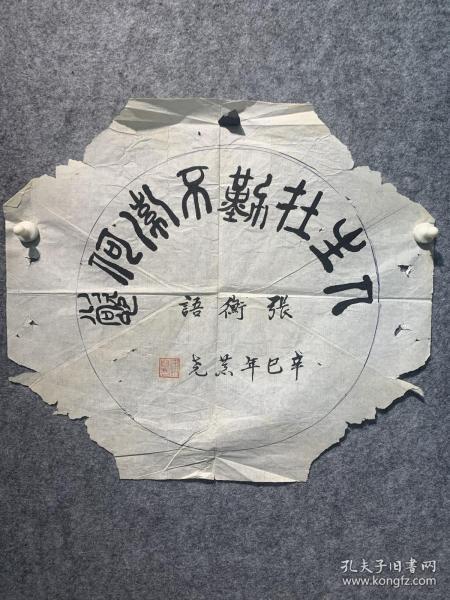 人生在勤不索何獲
張衡語
辛巳年
孔夫子旧书网
www.kongfz.com